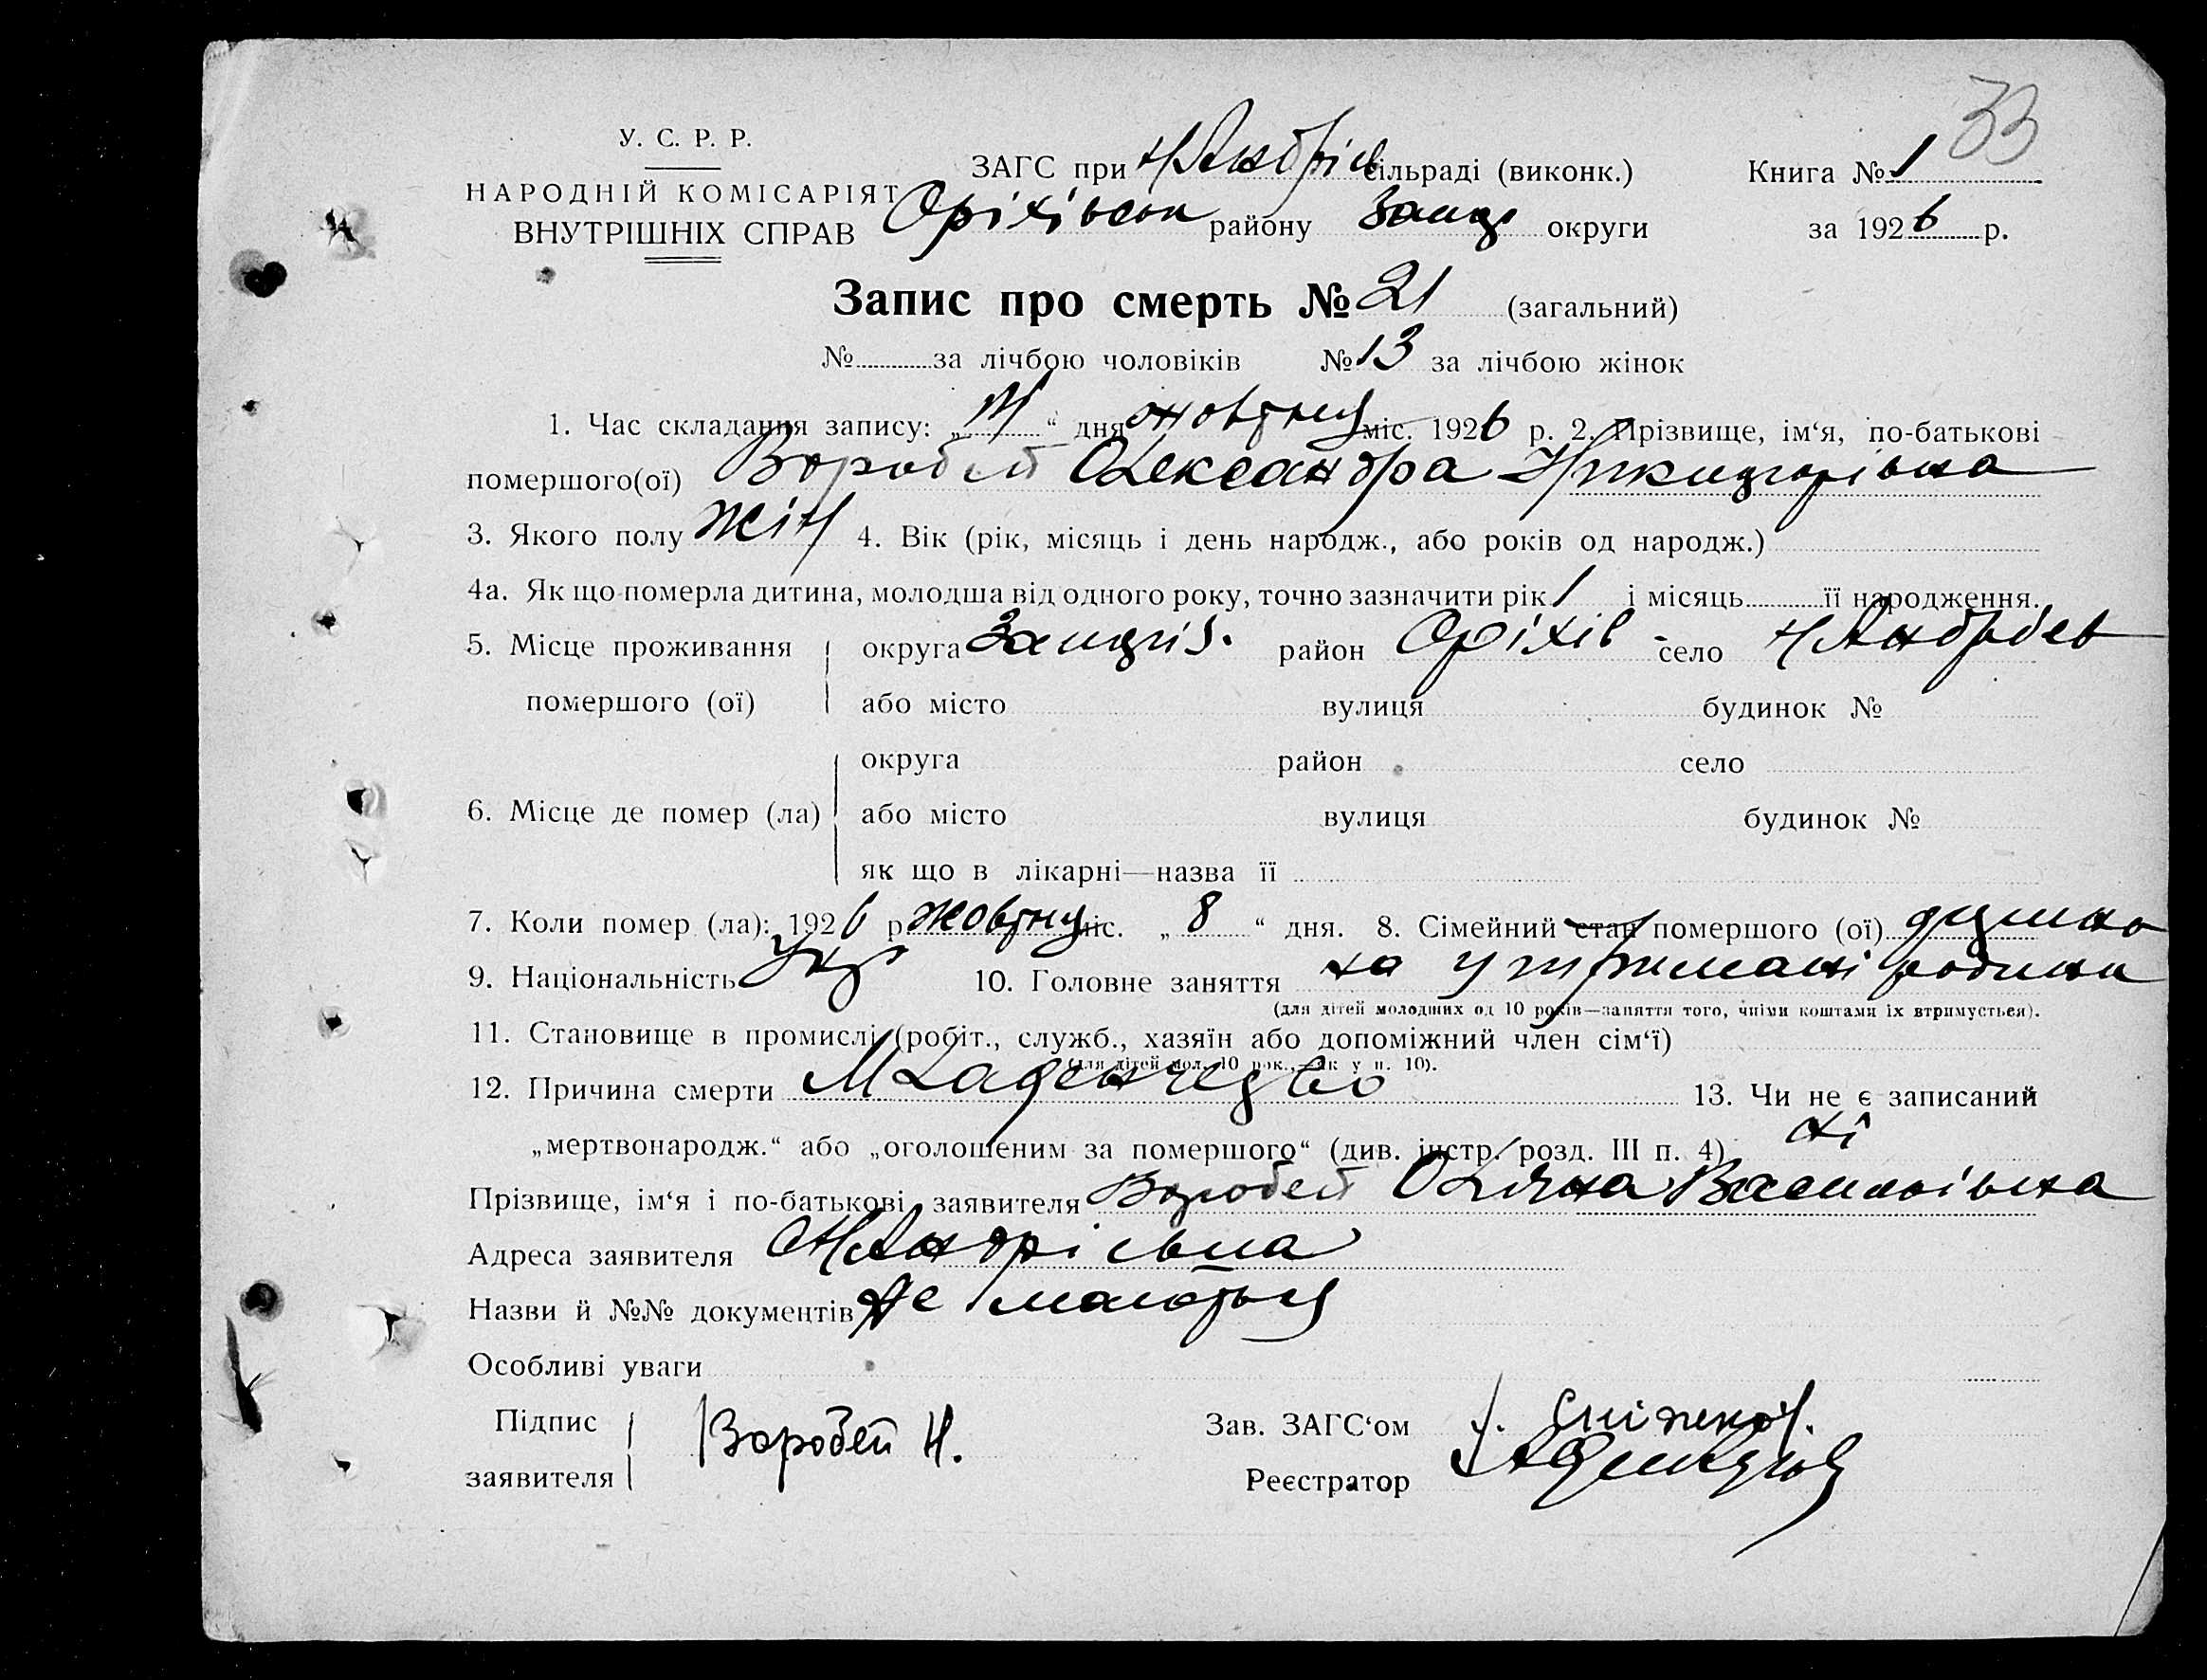 33
У. С. Р. Р.
НАРОДНІЙ КОМІСАРІЯТ
ВНУТРІШНІХ СПРАВ
ЗАГС при Н Андрів сільраді (виконк.) Книга № 1
Оріхівськ району Запор округи за 1926 р.
Запис про смерть № 21 (загальний)
№ за лічбою чоловіків № 13 за лічбою жінок
1. Час складання запису: „ “ дня жовтня міс. 1926 р. 2. Прізвище, ім‘я, по-батькові
помершого(ої) Воробей Олександра
3. Якого полу Жін 4. Вік (рік, місяць і день народж., або років од народж.)
4а. Як що померла дитина, молодша від одного року, точно зазначити рік 1 і місяць її народження.
5. Місце проживання округа район Оріхів село Н Андрів
помершого (ої) або місто вулиця будинок №
округа район село
6. Місце де помер (ла) або місто вулиця будинок №
як що в лікарні—назва її
7. Коли помер (ла): 1926 р жовтня міс. „ 8 “ дня. 8. Сімейний стан помершого (ої)
9. Національність Укр 10. Головне заняття на утримані родини
(для дітей молодших од 10 років—заняття того, чиїми коштами їх втримується).
11. Становище в промислі (робіт., служб., хазяїн або допоміжний член сім‘ї)
(для дітей мол. 10 рок., як у п. 10).
12. Причина смерти Младенчество 13. Чи не є записаний
„мертвонародж.“ або „оголошеним за помершого“ (див. інстр. розд. III п. 4) ні
Прізвище, ім‘я і по-батькові заявителя Воробей Василівна
Адреса заявителя Андрівка
Назви й №№ документів Не мається
Особливі уваги
Підпис
заявителя Воробей Н.
Зав. ЗАГС‘ом
Реєстратор